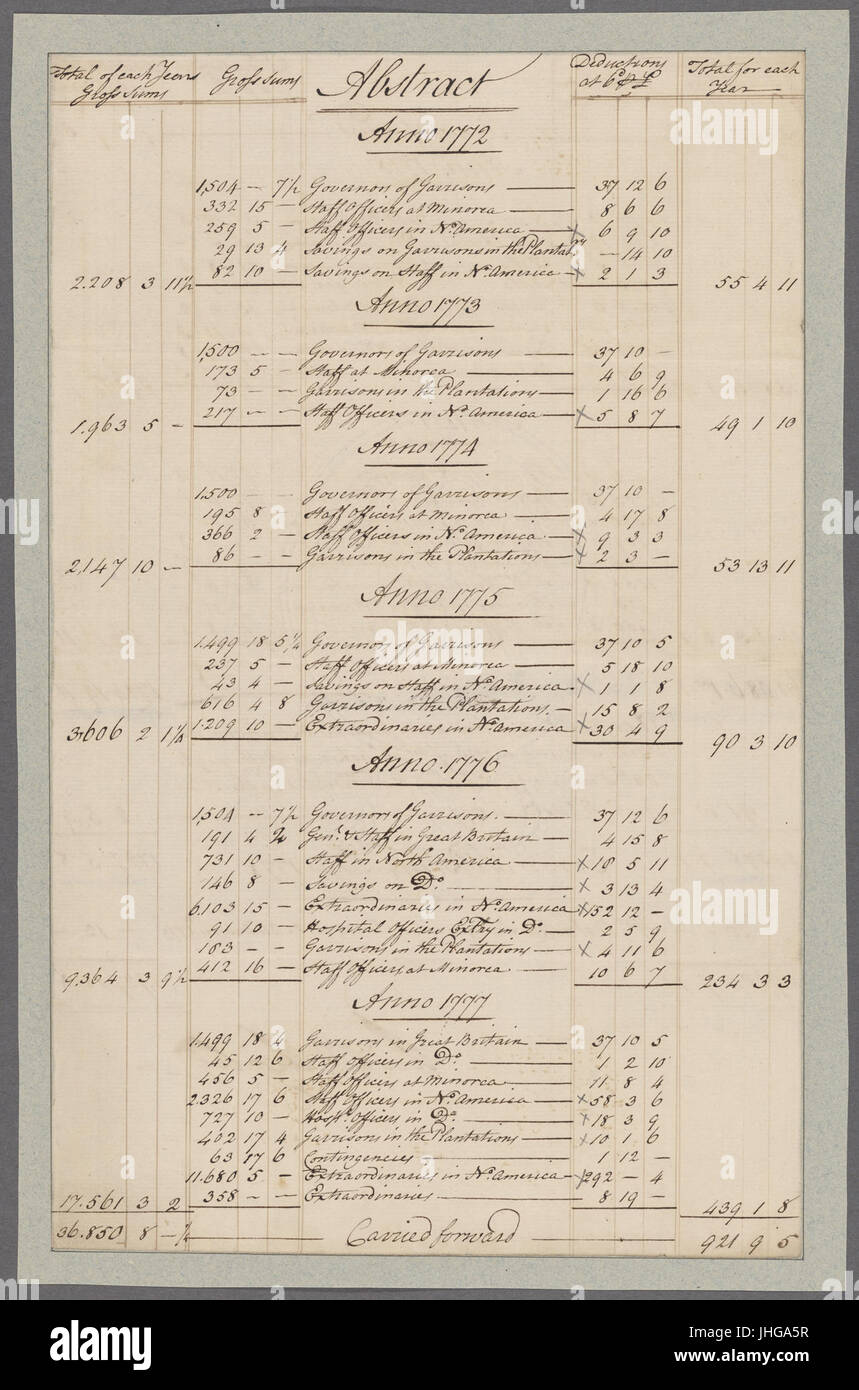 Total of each Years Gross Sums Gross Sums Abstract Deductions at 6d ⅌ £ Total for each Year
Anno 1772
1,504 — 7½ Governors of Garrisons — 37 12 6
332 15 — Staff Officers at Minorca — 8 6 6
259 5 — Staff Officers in No. America — x 6 9 10
29 13 4 Savings on Garrisons in the Plantat.ns — 14 10
82 10 — Savings on Staff in No. America — x 2 1 3
2.208 3 11½ 55 4 11
Anno 1773
1,500 — — Governors of Garrisons — 37 10 —
173 5 — Staff at Minorca — 4 6 9
73 — — Garrisons in the Plantations — 1 16 6
217 — — Staff Officers in No. America — x 5 8 7
1.963 5 — 49 1 10
Anno 1774
1,500 — — Governors of Garrisons — 37 10 —
195 8 — Staff Officers at Minorca — 4 17 8
366 2 — Staff Officers in No. America — x 9 3 3
86 — — Garrisons in the Plantations — x 2 3 —
2,147 10 — 53 13 11
Anno 1775
1.499 18 5¼ Governors of Garrisons — 37 10 5
237 5 — Staff Officers at Minorca — 5 18 10
43 4 — Savings on Staff in No. America x 1 1 8
616 4 8 Garrisons in the Plantations. — 15 8 2
1.209 10 — Extraordinaries in No. America x 30 4 9
3,606 2 1¼ 90 3 10
Anno 1776
1,504 — 7½ Governors of Garrisons. — 37 12 6
191 4 2 Genl. & Staff in Great Britain — 4 15 8
731 10 — Staff in North America — x 18 5 11
146 8 — Savings on Do. — x 3 13 4
6.103 15 — Extraordinaries in No. America x 152 12 —
91 10 — Hospital Officers Extry in Do. — 2 5 9
183 — — Garrisons in the Plantations — x 4 11 6
412 16 — Staff Officers at Minorca — 10 6 7
9.364 3 9½ 234 3 3
Anno 1777
1.499 18 4 Garrisons in Great Britain — 37 10 5
45 12 6 Staff Officers in Do. — 1 2 10
456 5 — Staff Officers at Minorca — 11 8 4
2326 17 6 Staff Officers in No. America — x 58 3 6
727 10 — Hospl. Officers in Do. — x 18 3 9
402 17 4 Garrisons in the Plantations — x 10 1 6
63 17 6 Contingencies — 1 12 —
11.680 5 — Extraordinaries in No. America — x 292 — 4
358 — — Extraordinaries — 8 19 —
17.561 3 2 439 1 8
36.850 8 — ¼ Carried forward 921 9 5
alamy
Image ID: JHGA5R
www.alamy.com